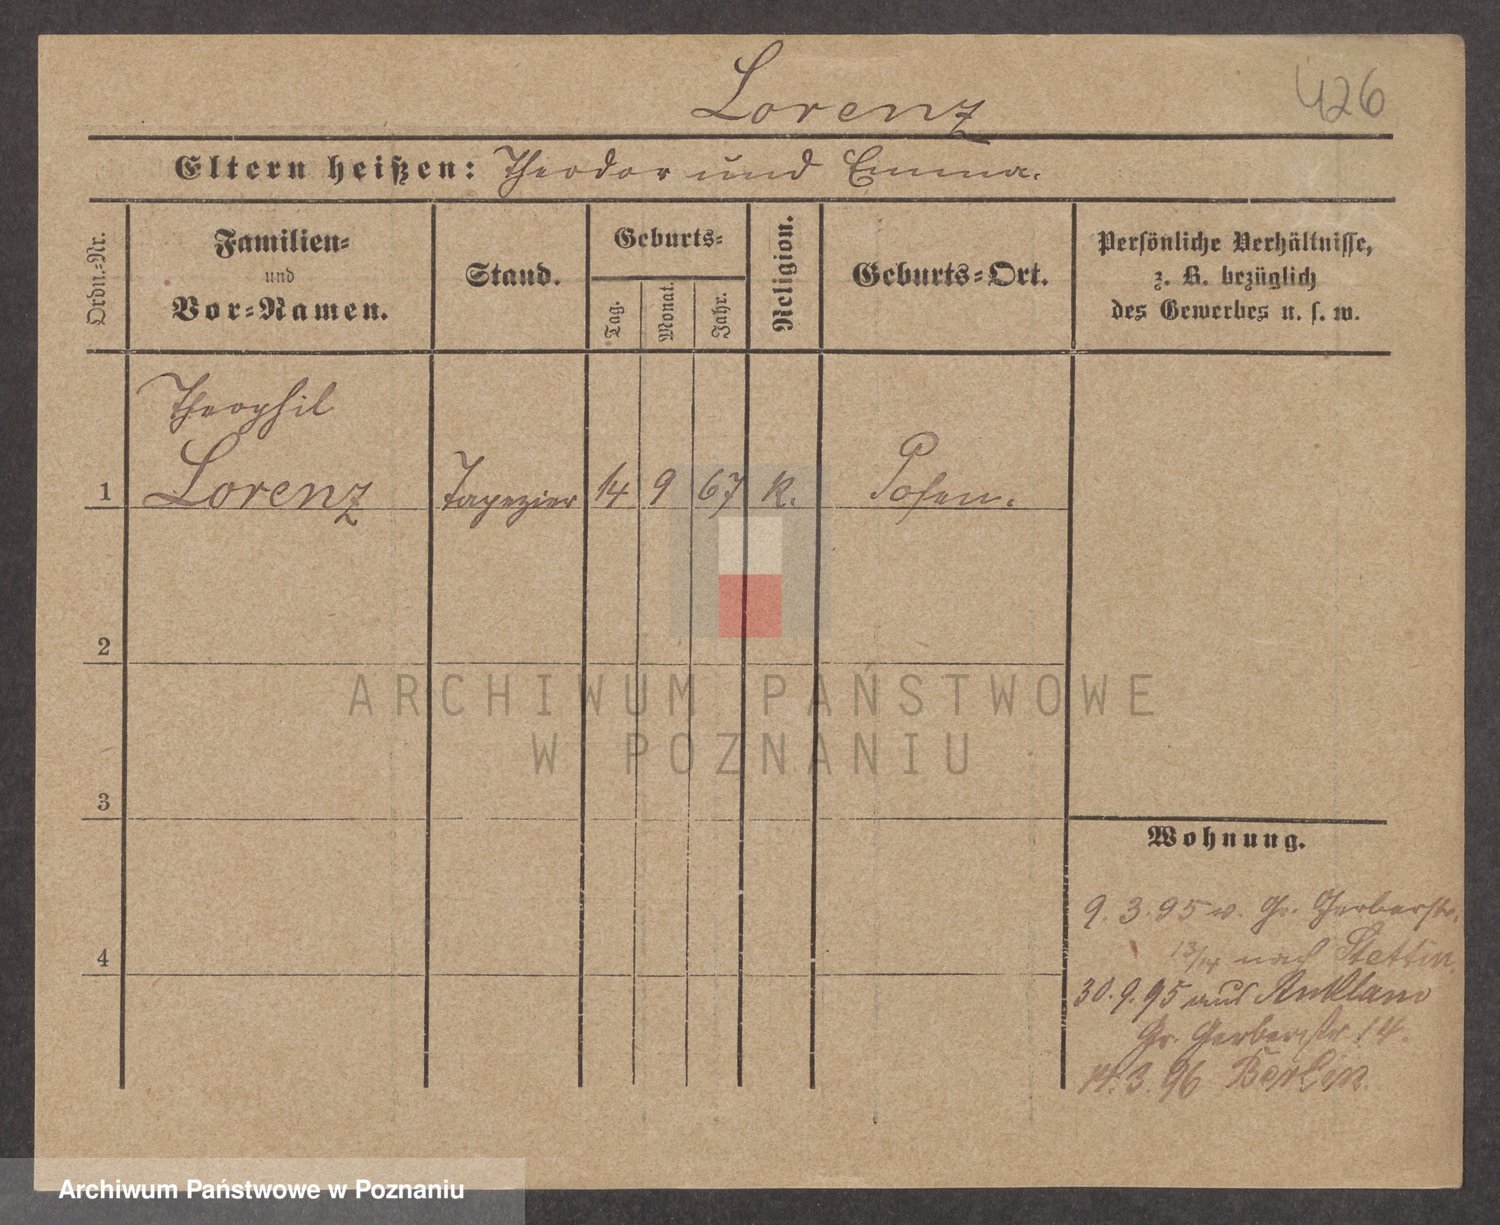 Lorenz
426
Eltern heißen: Theodor und Emma.
Ordn.-Nr.
Familien-
und
Vor-Namen.
Stand.
Geburts-
Tag.
Monat.
Jahr.
Religion.
Geburts-Ort.
Persönliche Verhältnisse,
z. B. bezüglich
des Gewerbes u. s. w.
Theophil
1 Lorenz Tapezier 14 9 67 K. Posen.
2
3
4
Wohnung.
9. 3. 95 v. Gr. Gerberstr.
nach Stettin
30. 9. 95 aus Anklam
Gr. Gerberstr. 14.
14. 3. 96 Berlin.
ARCHIWUM PAŃSTWOWE
W POZNANIU
Archiwum Państwowe w Poznaniu